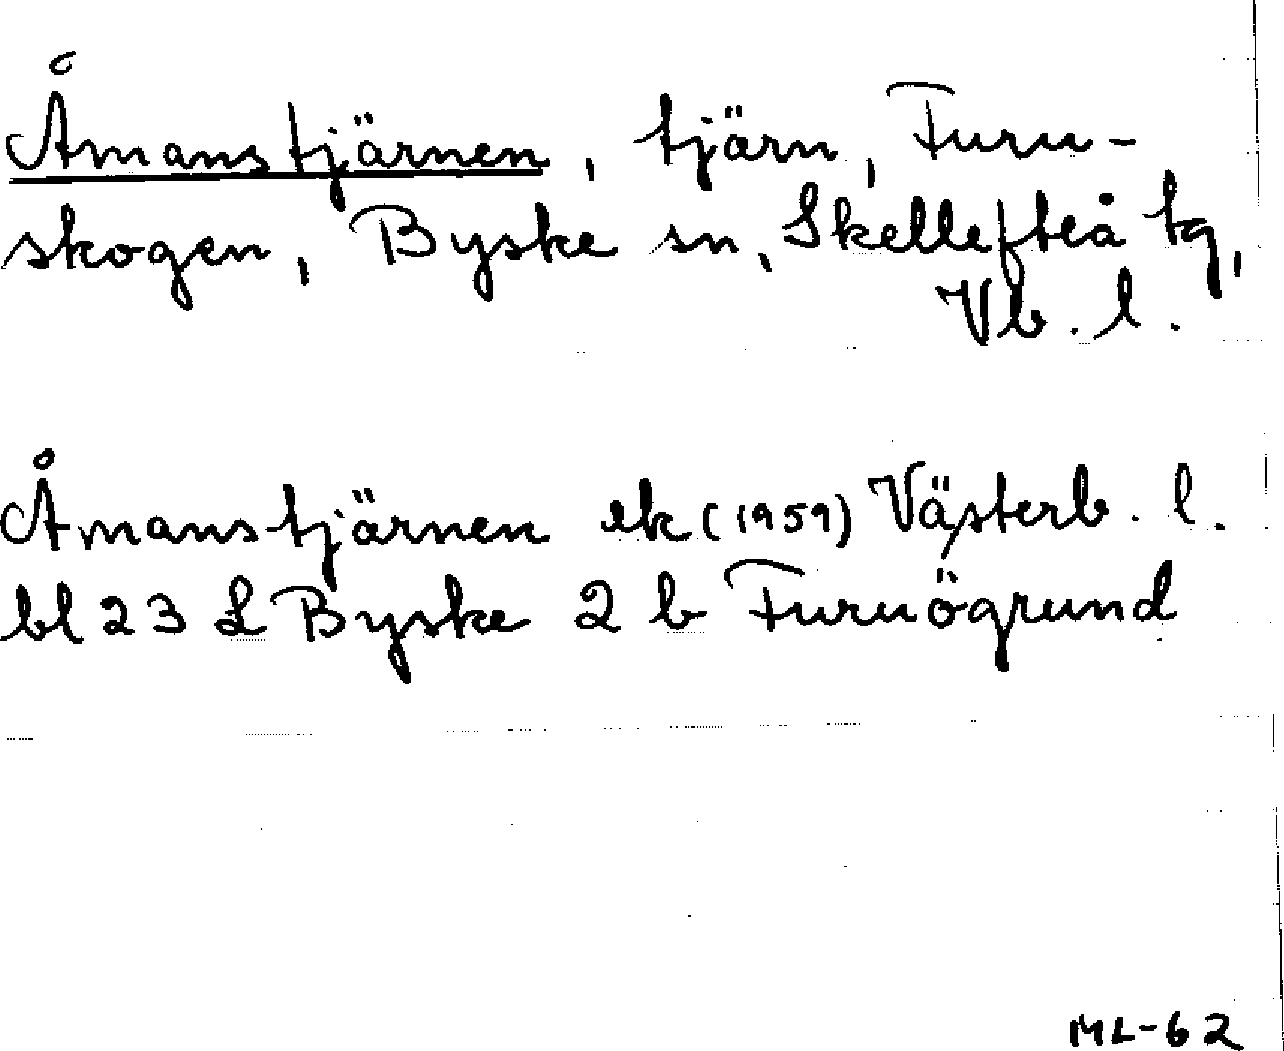 Åmanstjärnen, tjärn, Furu-
skogen, Byske sn, Skellefteå tg,
Vb. l.
Åmanstjärnen ek (1959) Västerb. l.
bl 23 L Byske 2 b Furuögrund
ML-62